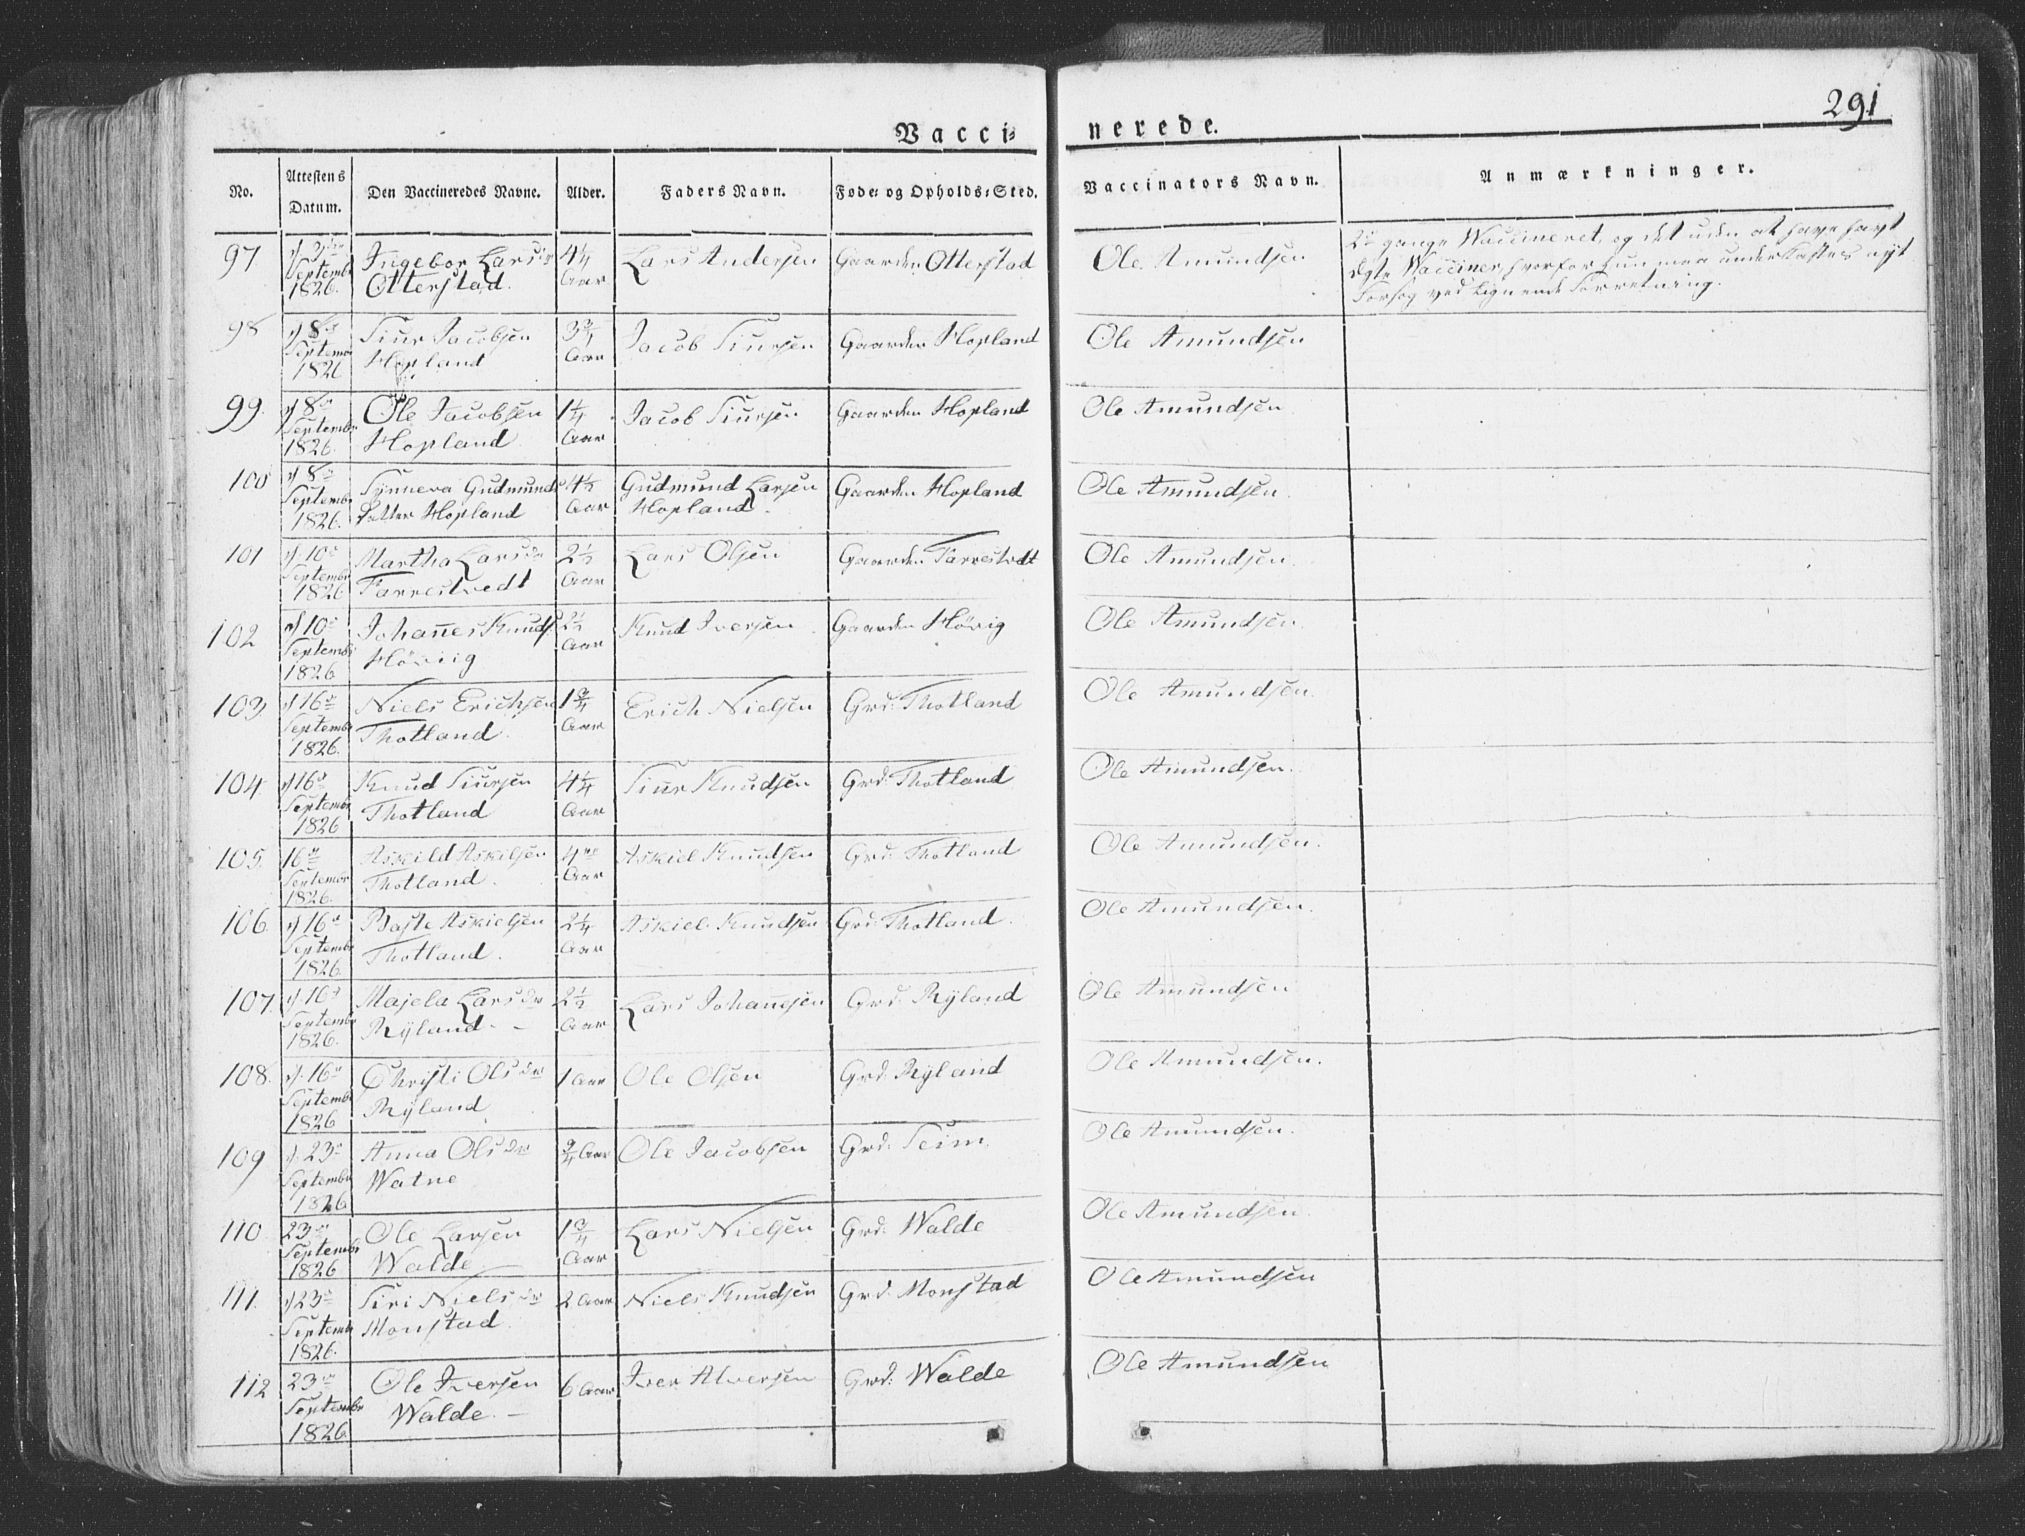 Vacci=
nerede.
291
No.
Attestens Datum.
Den Vaccineredes Navne.
Alder.
Faders Navn.
Føde= og Opholds=Sted.
Vaccinators Navn.
Anmærkninger.
97 Septembr 1826. Ingebor Larsdr Otterstad. 4¼ Aar Lars Andersen Gaarden Otterstad Ole Amundsen
2 gange Waccineret, og det uden at have havt
ægte Wacciner, hvorfor hun maa underkastes nyt
Forsøg ved lignende Forretning.
98 8 Septembr 1826 Siur Jacobsen Hopland 3¾ Aar Jacob Siursen Gaarden Hopland Ole Amundsen
99. 8 Septembr 1826. Ole Jacobsen Hopland 1¼ Aar Jacob Siursen Gaarden Hopland Ole Amundsen.
100 8 Septembr 1826. Synneva Gudmunds Datter Hopland 4½ Aar Gudmund Larsen Hopland. Gaarden Hopland Ole Amundsen.
101 10 Septembr 1826 Martha Larsdr Farrestvedt 2½ Aar Lars Olsen Gaarden Farrestvedt Ole Amundsen.
102 10 Septembr 1826 Johannes Knuds. Hövig 2½ Aar Knud Iversen Gaarden Hövig Ole Amundsen.
103 16 Septembr 1826. Niels Erichsen Thotland. 1¾ Aar Erich Nielsen Grd: Thotland Ole Amundsen.
104 16 Septembr 1826 Knud Siursen Thotland 4¼ Aar Siur Knudsen Grd: Thotland Ole Amundsen.
105. 16 Septembr 1826. Askild Askilsen Thotland. 4 Aar Askiel Knudsen Grd: Thotland Ole Amundsen.
106. 16 Septembr 1826. Baste Askielsen Thotland. 2¼ Aar Askiel Knudsen Grd: Thotland. Ole Amundsen.
107. 16 Septembr 1826. Majela Larsdr Rÿland. – 2½ Aar Lars Johannesen Grd: Rÿland Ole Amundsen
108. 16 Septembr 1826 Christi Olsdr Rÿland 1 Aar Ole Olsen Grd: Rÿland Ole Amundsen.
109 23 Septembr 1826 Anna Olsdr Watne ¾ Aar Ole Jacobsen Grd: Seim. Ole Amundsen.
110. 23 Septembr 1826 Ole Larsen Walde 1¾ Aar Lars Nielsen Grd: Walde Ole Amundsen.
111. 23 Septembr 1826. Siri Nielsdr Monstad. 2 Aar Niels Knudsen Grd: Monstad Ole Amundsen
112 23 Septembr 1826. Ole Iversen Walde. – 6 Aar Iver Alversen Grd: Walde Ole Amundsen